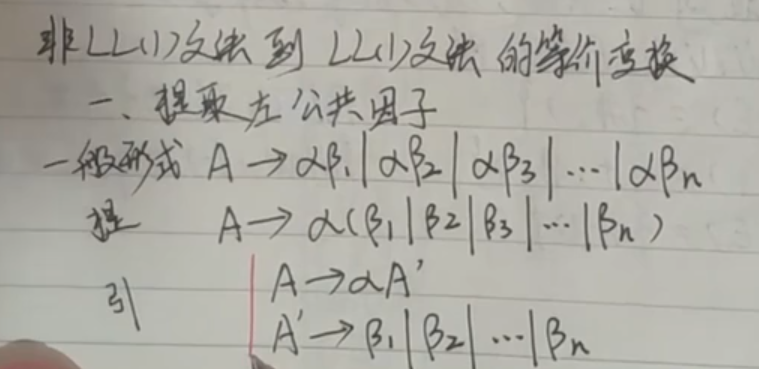 非LL(1)文法到 LL(1)文法 的等价变换
一、提取左公共因子
一般形式 A → αβ₁ | αβ₂ | αβ₃ | … | αβₙ
提 A → α(β₁ | β₂ | β₃ | … | βₙ)
引 A → αA'
A' → β₁ | β₂ | … | βₙ